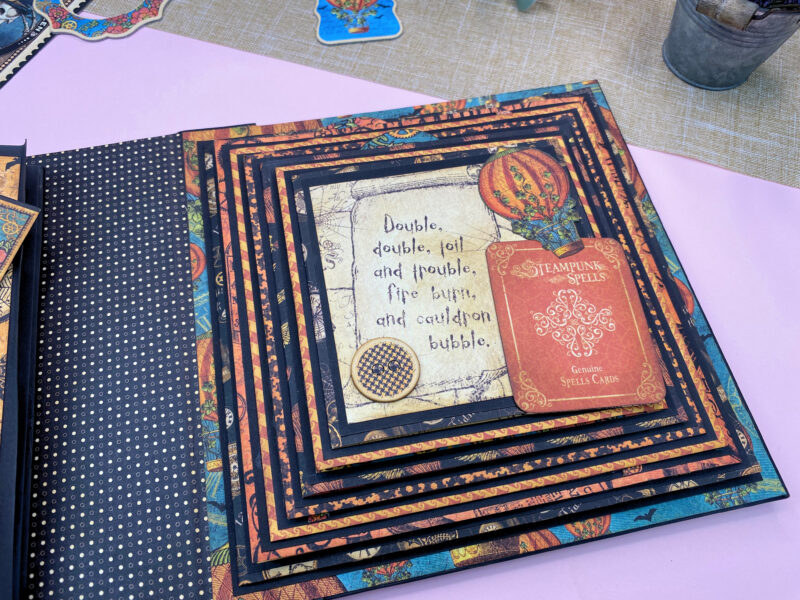 Double,
double, toil
and trouble,
fire burn,
and cauldron
bubble.
Steampunk
Spells
Genuine
Spells Cards